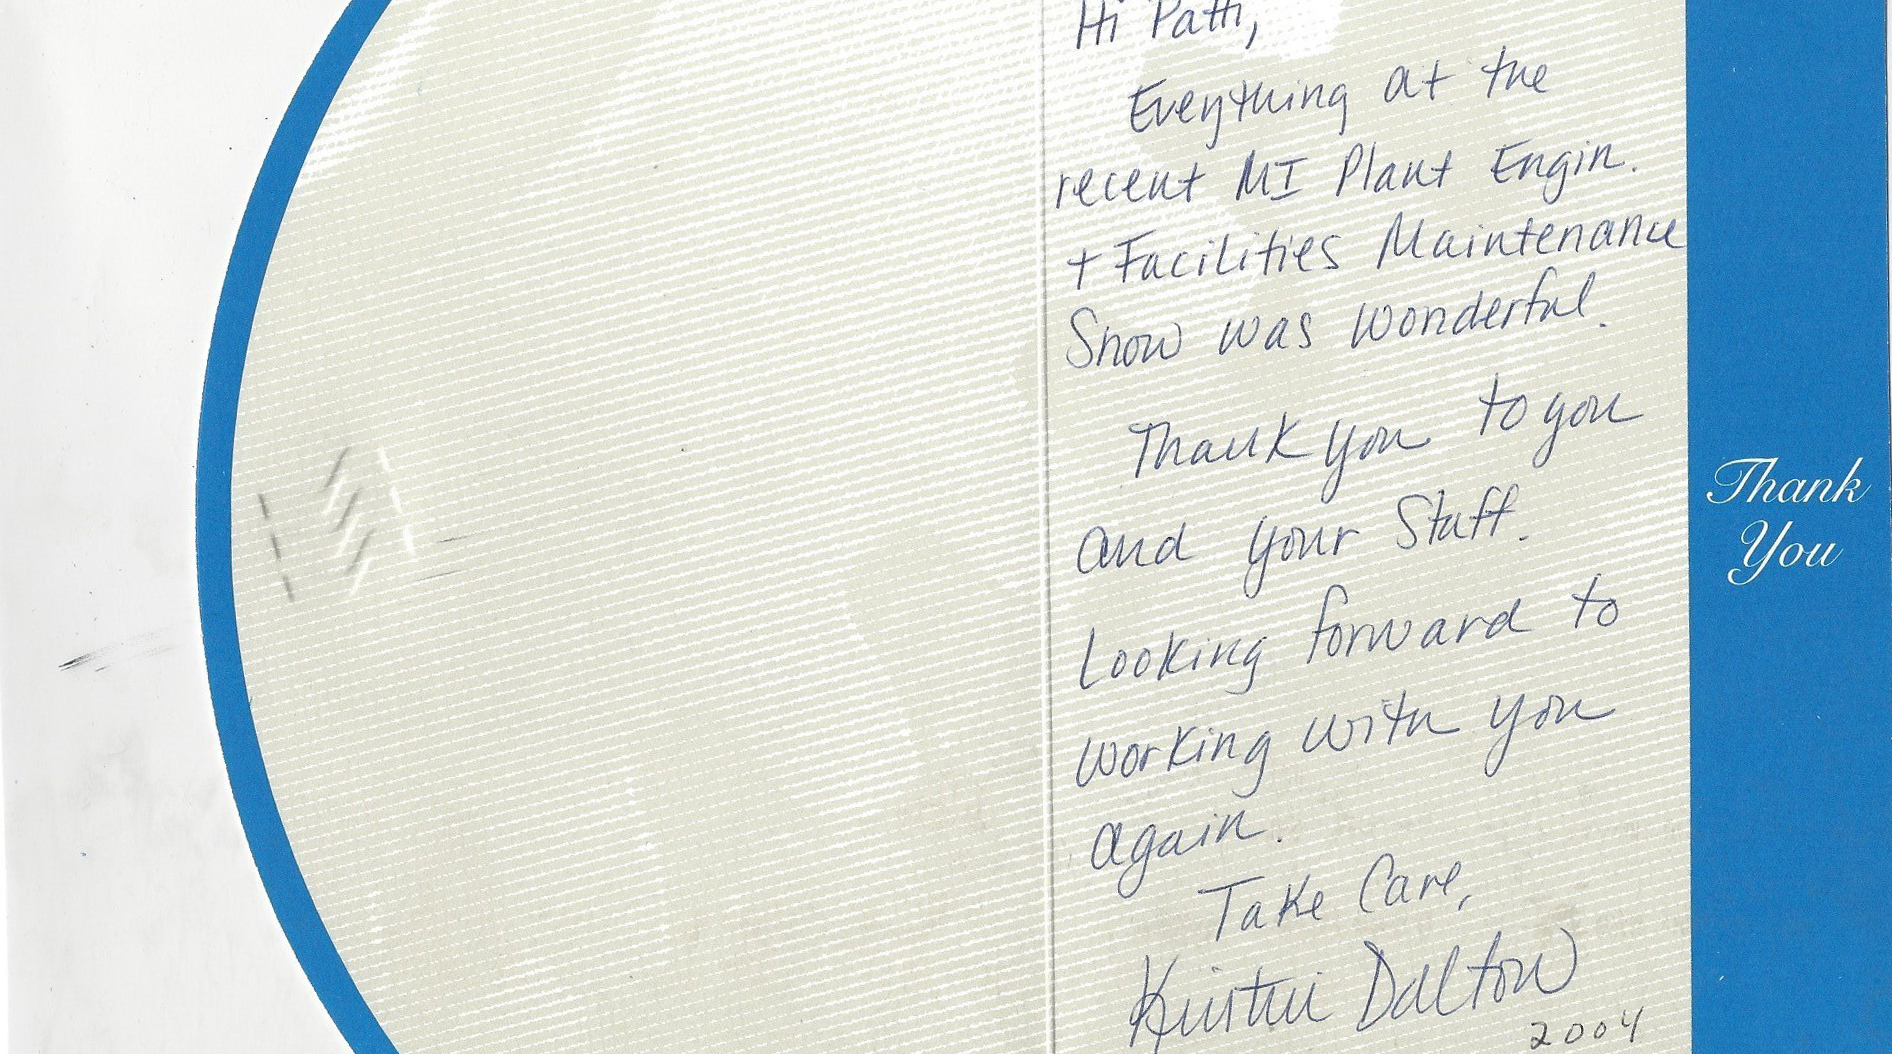 Hi Patti,
Everything at the
recent MI Plant Engin.
+ Facilities Maintenance
Show was wonderful.
Thank you to you
and your Staff.
Looking forward to
working with you
again.
Take Care,
Kirstin Dalton
2004
Thank
You